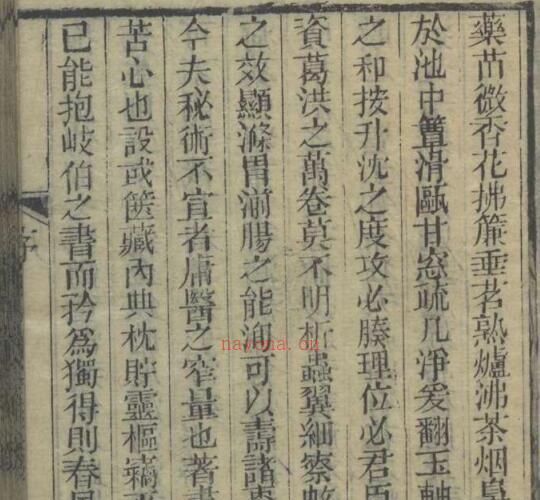 藥苗微香花拂簾垂茗熟爐沸茶烟
於池中簟清甌甘窓疏几淨爰翻玉軸
之和按升沈之度攻必腠理位必君臣
資葛洪之萬卷莫不明析蟲翼細察蚊
之效顯滌胃湔腸之能洵可以壽諸
今夫秘術不宣者庸醫之窄量也著書
苦心也設或篋藏內典枕貯靈樞竊
已能抱岐伯之書而矜爲獨得則春
序
nayona.cn